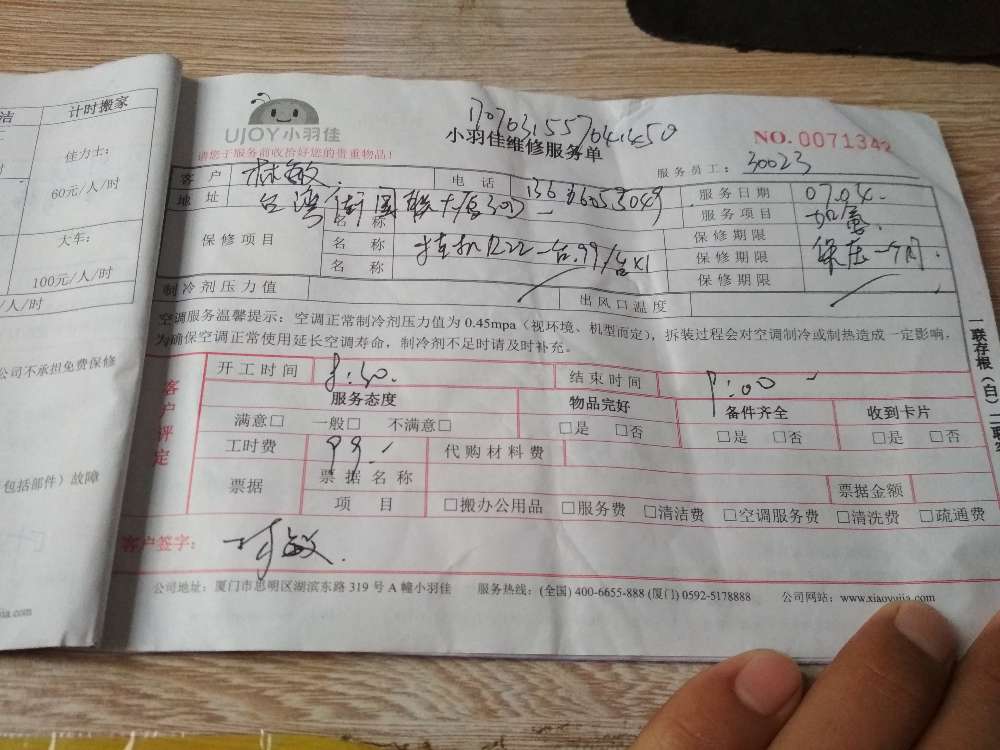 洁
计时搬家
时
佳力士：
60元/人/时
大车：
100元/人/时
/人/时
公司不承担免费保修
包括部件）故障
UJOY小羽佳
请您于服务前收拾好您的贵重物品！
小羽佳维修服务单
NO.0071342
服务员工：30023
客 户 林敏 电 话
服务日期 07.04.
地 址 台湾街国联大厦
服务项目 加氟
保修项目
名 称
保修期限
名 称 挂机R22一台.99/台×1
保修期限 保压一个月.
名 称
保修期限
制冷剂压力值 出风口温度
空调服务温馨提示：空调正常制冷剂压力值为 0.45mpa（视环境、机型而定），拆装过程会对空调制冷或制热造成一定影响，
为确保空调正常使用延长空调寿命，制冷剂不足时请及时补充。
客户评定
开工时间 8:30. 结束时间 9:00
服务态度 物品完好 备件齐全 收到卡片
满意□ 一般□ 不满意□ □是 □否 □是 □否 □是 □否
工时费 99. 代购材料费
票据 票据名称 票据金额
项 目 □搬办公用品 □服务费 □清洁费 □空调服务费 □清洗费 □疏通费
客户签字： 林敏.
公司地址：厦门市思明区湖滨东路 319 号 A 幢小羽佳 服务热线：(全国) 400-6655-888 (厦门) 0592-5178888 公司网站：www.xiaoyujia.com
一联存根（白）二联